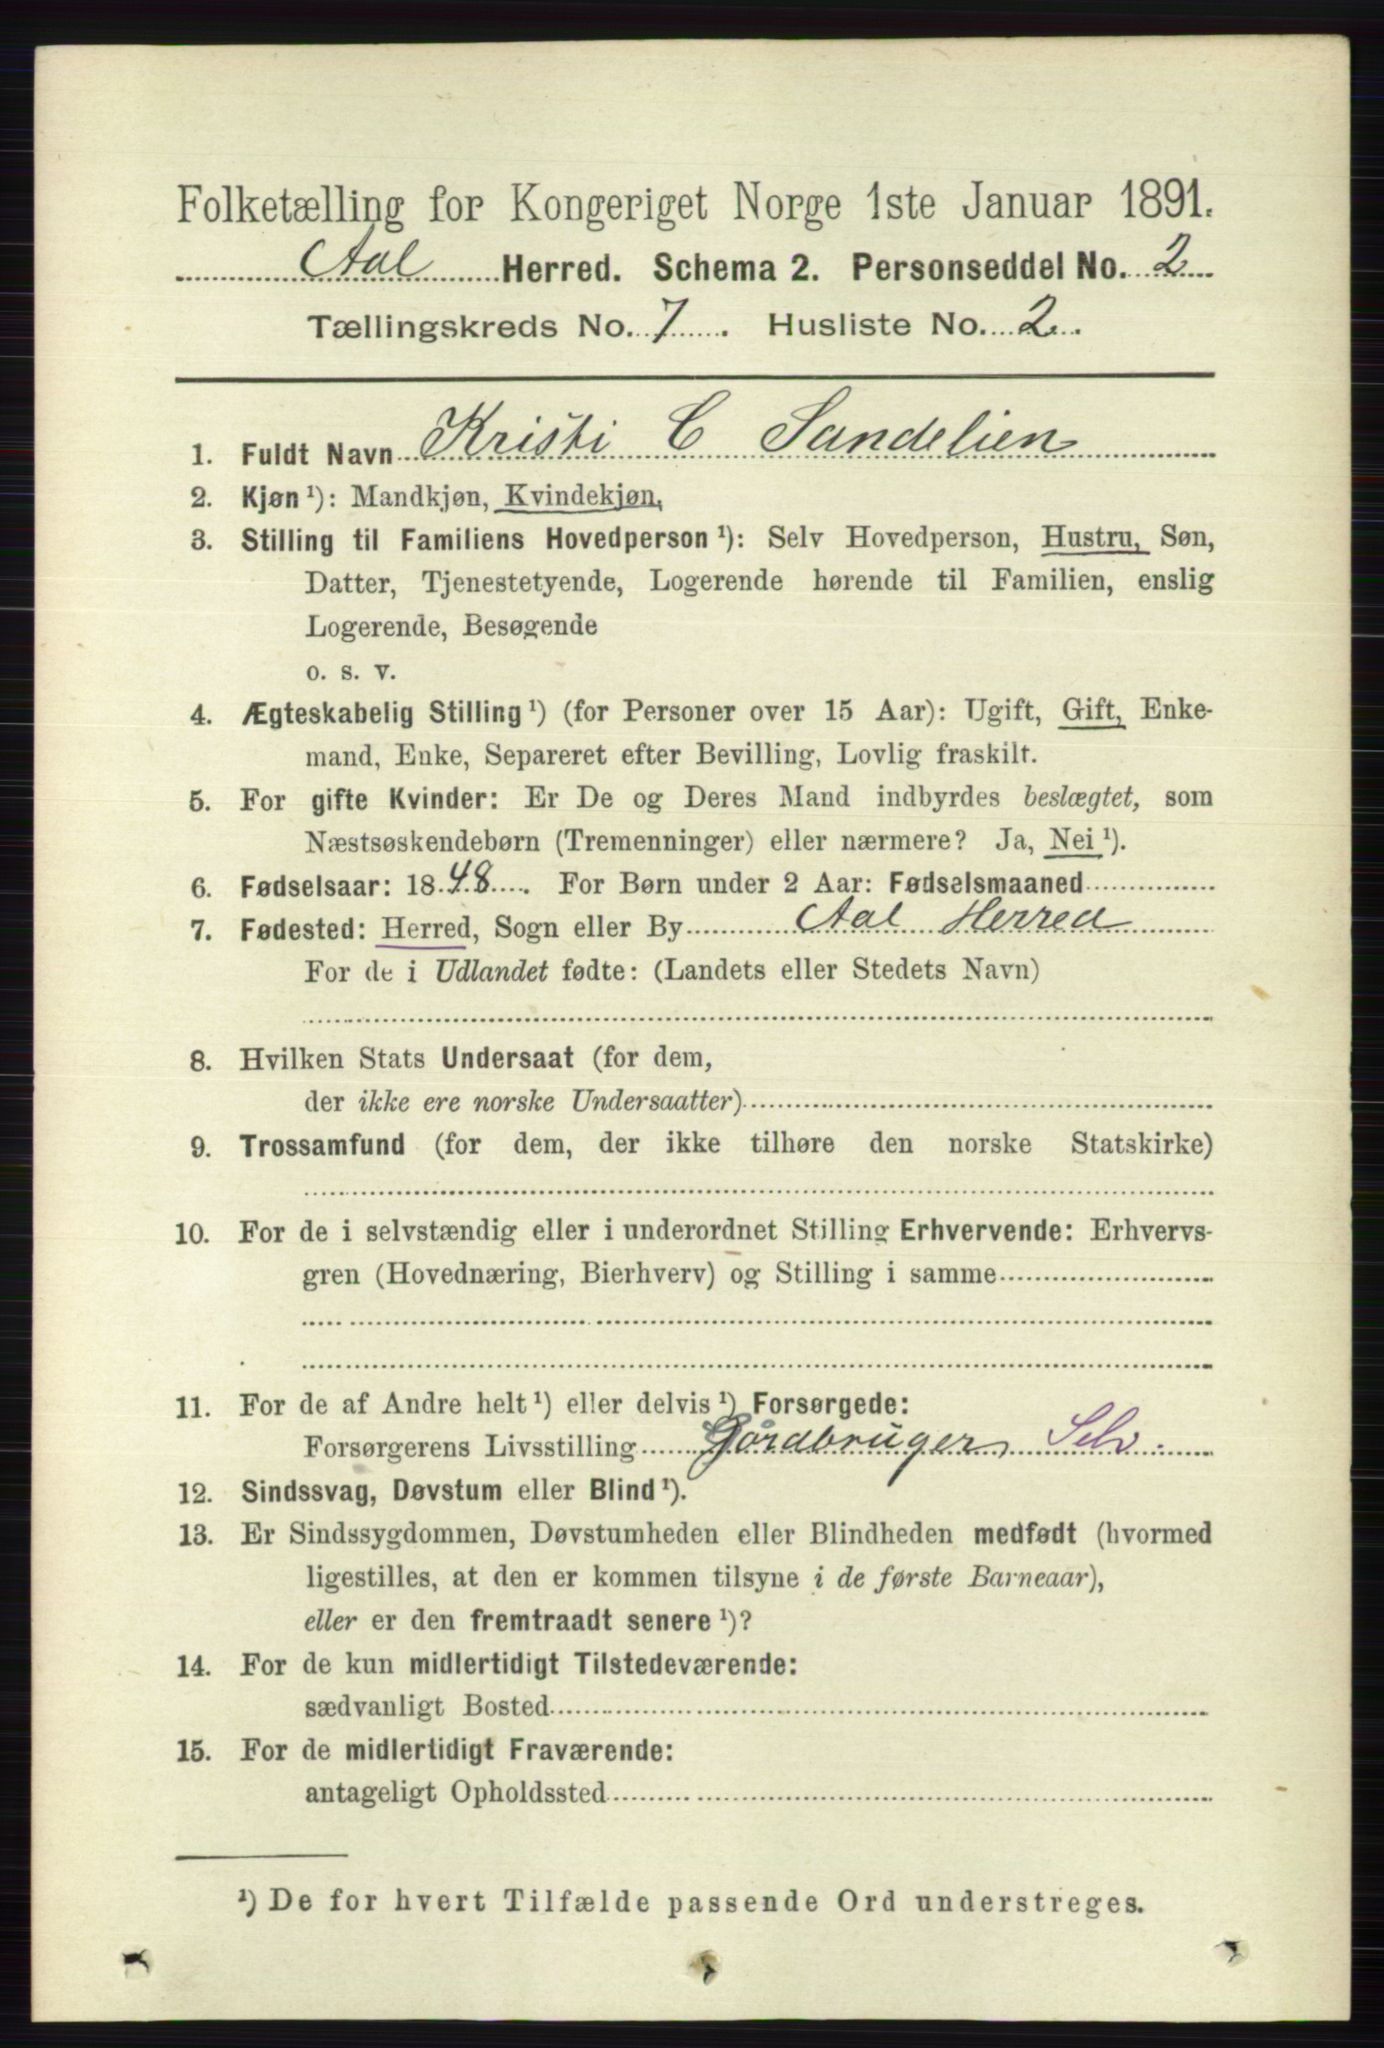 Folketælling for Kongeriget Norge 1ste Januar 1891.
Aal Herred. Schema 2. Personseddel No. 2
Tællingskreds No. 7. Husliste No. 2.
1. Fuldt Navn Kristi C Sandelien
2. Kjøn ¹): Mandkjøn, Kvindekjøn,
3. Stilling til Familiens Hovedperson ¹): Selv Hovedperson, Hustru, Søn,
Datter, Tjenestetyende, Logerende hørende til Familien, enslig
Logerende, Besøgende
o. s. v.
4. Ægteskabelig Stilling ¹) (for Personer over 15 Aar): Ugift, Gift, Enke-
mand, Enke, Separeret efter Bevilling, Lovlig fraskilt.
5. For gifte Kvinder: Er De og Deres Mand indbyrdes beslægtet, som
Næstsøskendebørn (Tremenninger) eller nærmere? Ja, Nei ¹).
6. Fødselsaar: 1848. For Børn under 2 Aar: Fødselsmaaned
7. Fødested: Herred, Sogn eller By Aal Herred
For de i Udlandet fødte: (Landets eller Stedets Navn)
8. Hvilken Stats Undersaat (for dem,
der ikke ere norske Undersaatter)
9. Trossamfund (for dem, der ikke tilhøre den norske Statskirke)
10. For de i selvstændig eller i underordnet Stilling Erhvervende: Erhvervs-
gren (Hovednæring, Bierhverv) og Stilling i samme
11. For de af Andre helt ¹) eller delvis ¹) Forsørgede:
Forsørgerens Livsstilling Gårdbruger, Selv.
12. Sindssvag, Døvstum eller Blind ¹).
13. Er Sindssygdommen, Døvstumheden eller Blindheden medfødt (hvormed
ligestilles, at den er kommen tilsyne i de første Barneaar),
eller er den fremtraadt senere ¹)?
14. For de kun midlertidigt Tilstedeværende:
sædvanligt Bosted
15. For de midlertidigt Fraværende:
antageligt Opholdssted
¹) De for hvert Tilfælde passende Ord understreges.